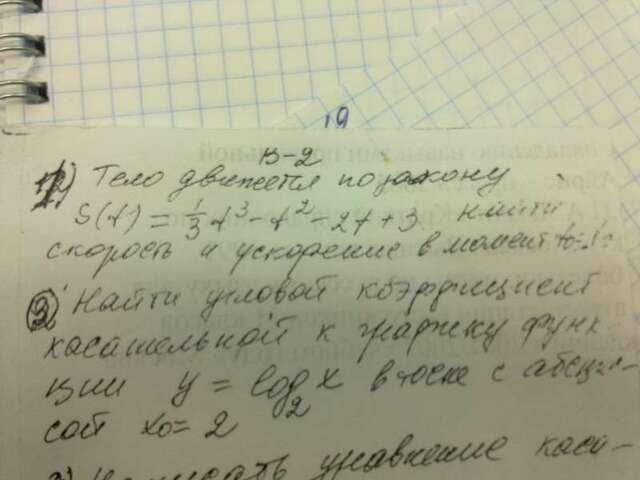 В-2
1) Тело движется по закону
S(t) = 1/3 t³ - t² - 2t + 3. Найти
скорость и ускорение в момент t₀=
2) Найти угловой коэффициент
касательной к графику функ-
ции y = log₂x в точке с абсцис-
сой x₀ = 2
3) Написать уравнение каса-